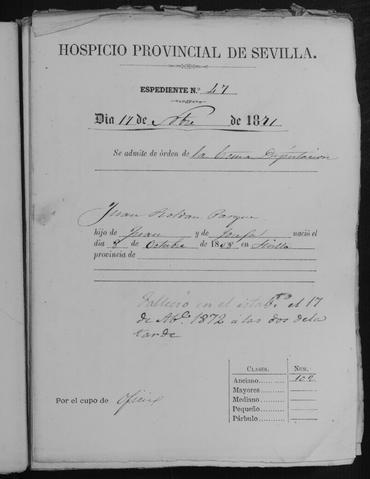 HOSPICIO PROVINCIAL DE SEVILLA.
EXPEDIENTE N.º 47
Dia 17 de de 1871
Se admite de órden de la Diputacion
Juan Roldan
hijo de Juan y de Josefa nació el
dia 8 de Octubre de 18 en Sevilla
provincia de
Falleció en el estab.to el 17
de 1872 a las dos de la
tarde
CLASES. NUM.
Anciano 102
Mayores
Mediano
Pequeño
Párbulo
Por el cupo de